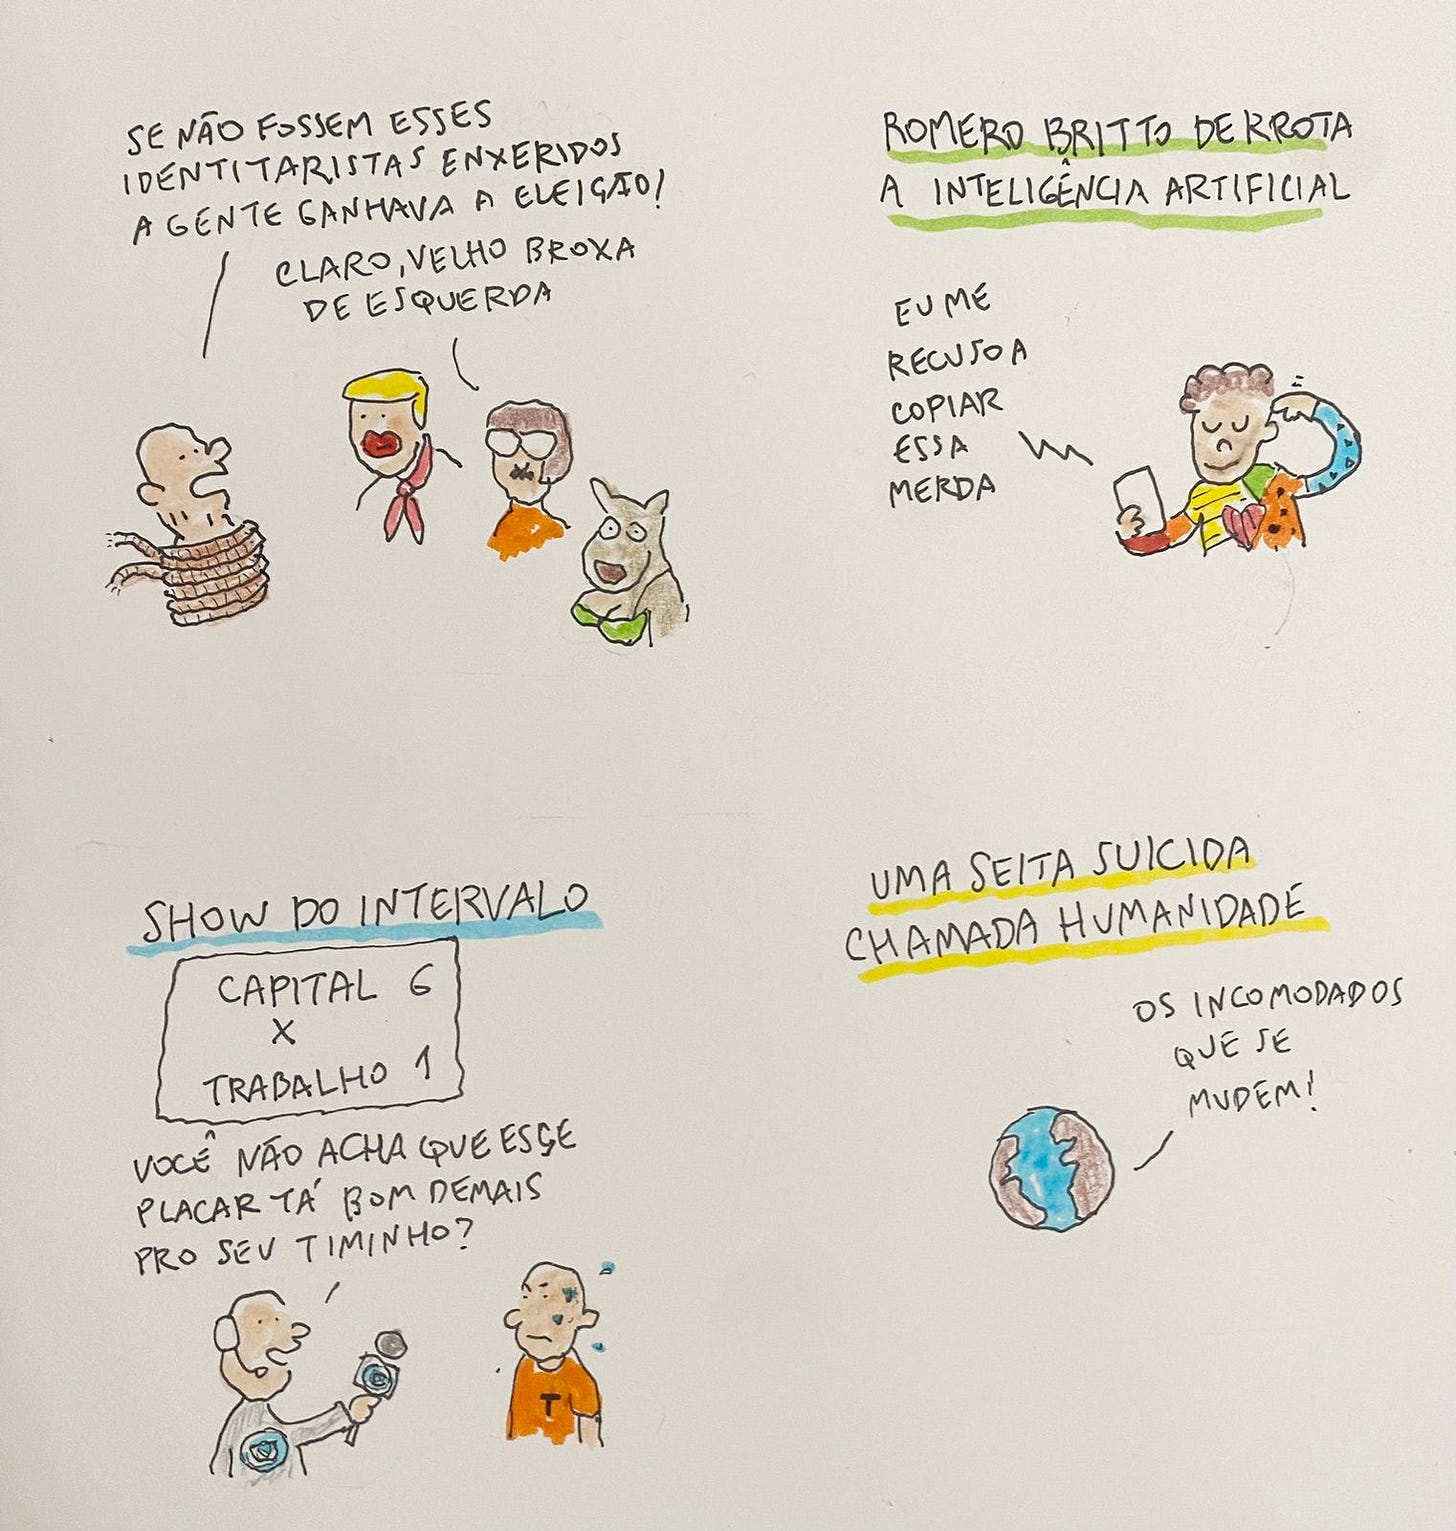 SE NÃO FOSSEM ESSES
IDENTITARISTAS ENXERIDOS
A GENTE GANHAVA A ELEIÇÃO!
CLARO, VELHO BROXA
DE ESQUERDA
ROMERO BRITTO DERROTA
A INTELIGÊNCIA ARTIFICIAL
EU ME
RECUSO A
COPIAR
ESSA
MERDA
SHOW DO INTERVALO
CAPITAL 6
X
TRABALHO 1
VOCÊ NÃO ACHA QUE ESSE
PLACAR TÁ BOM DEMAIS
PRO SEU TIMINHO?
T
UMA SEITA SUICIDA
CHAMADA HUMANIDADE
OS INCOMODADOS
QUE SE
MUDEM!